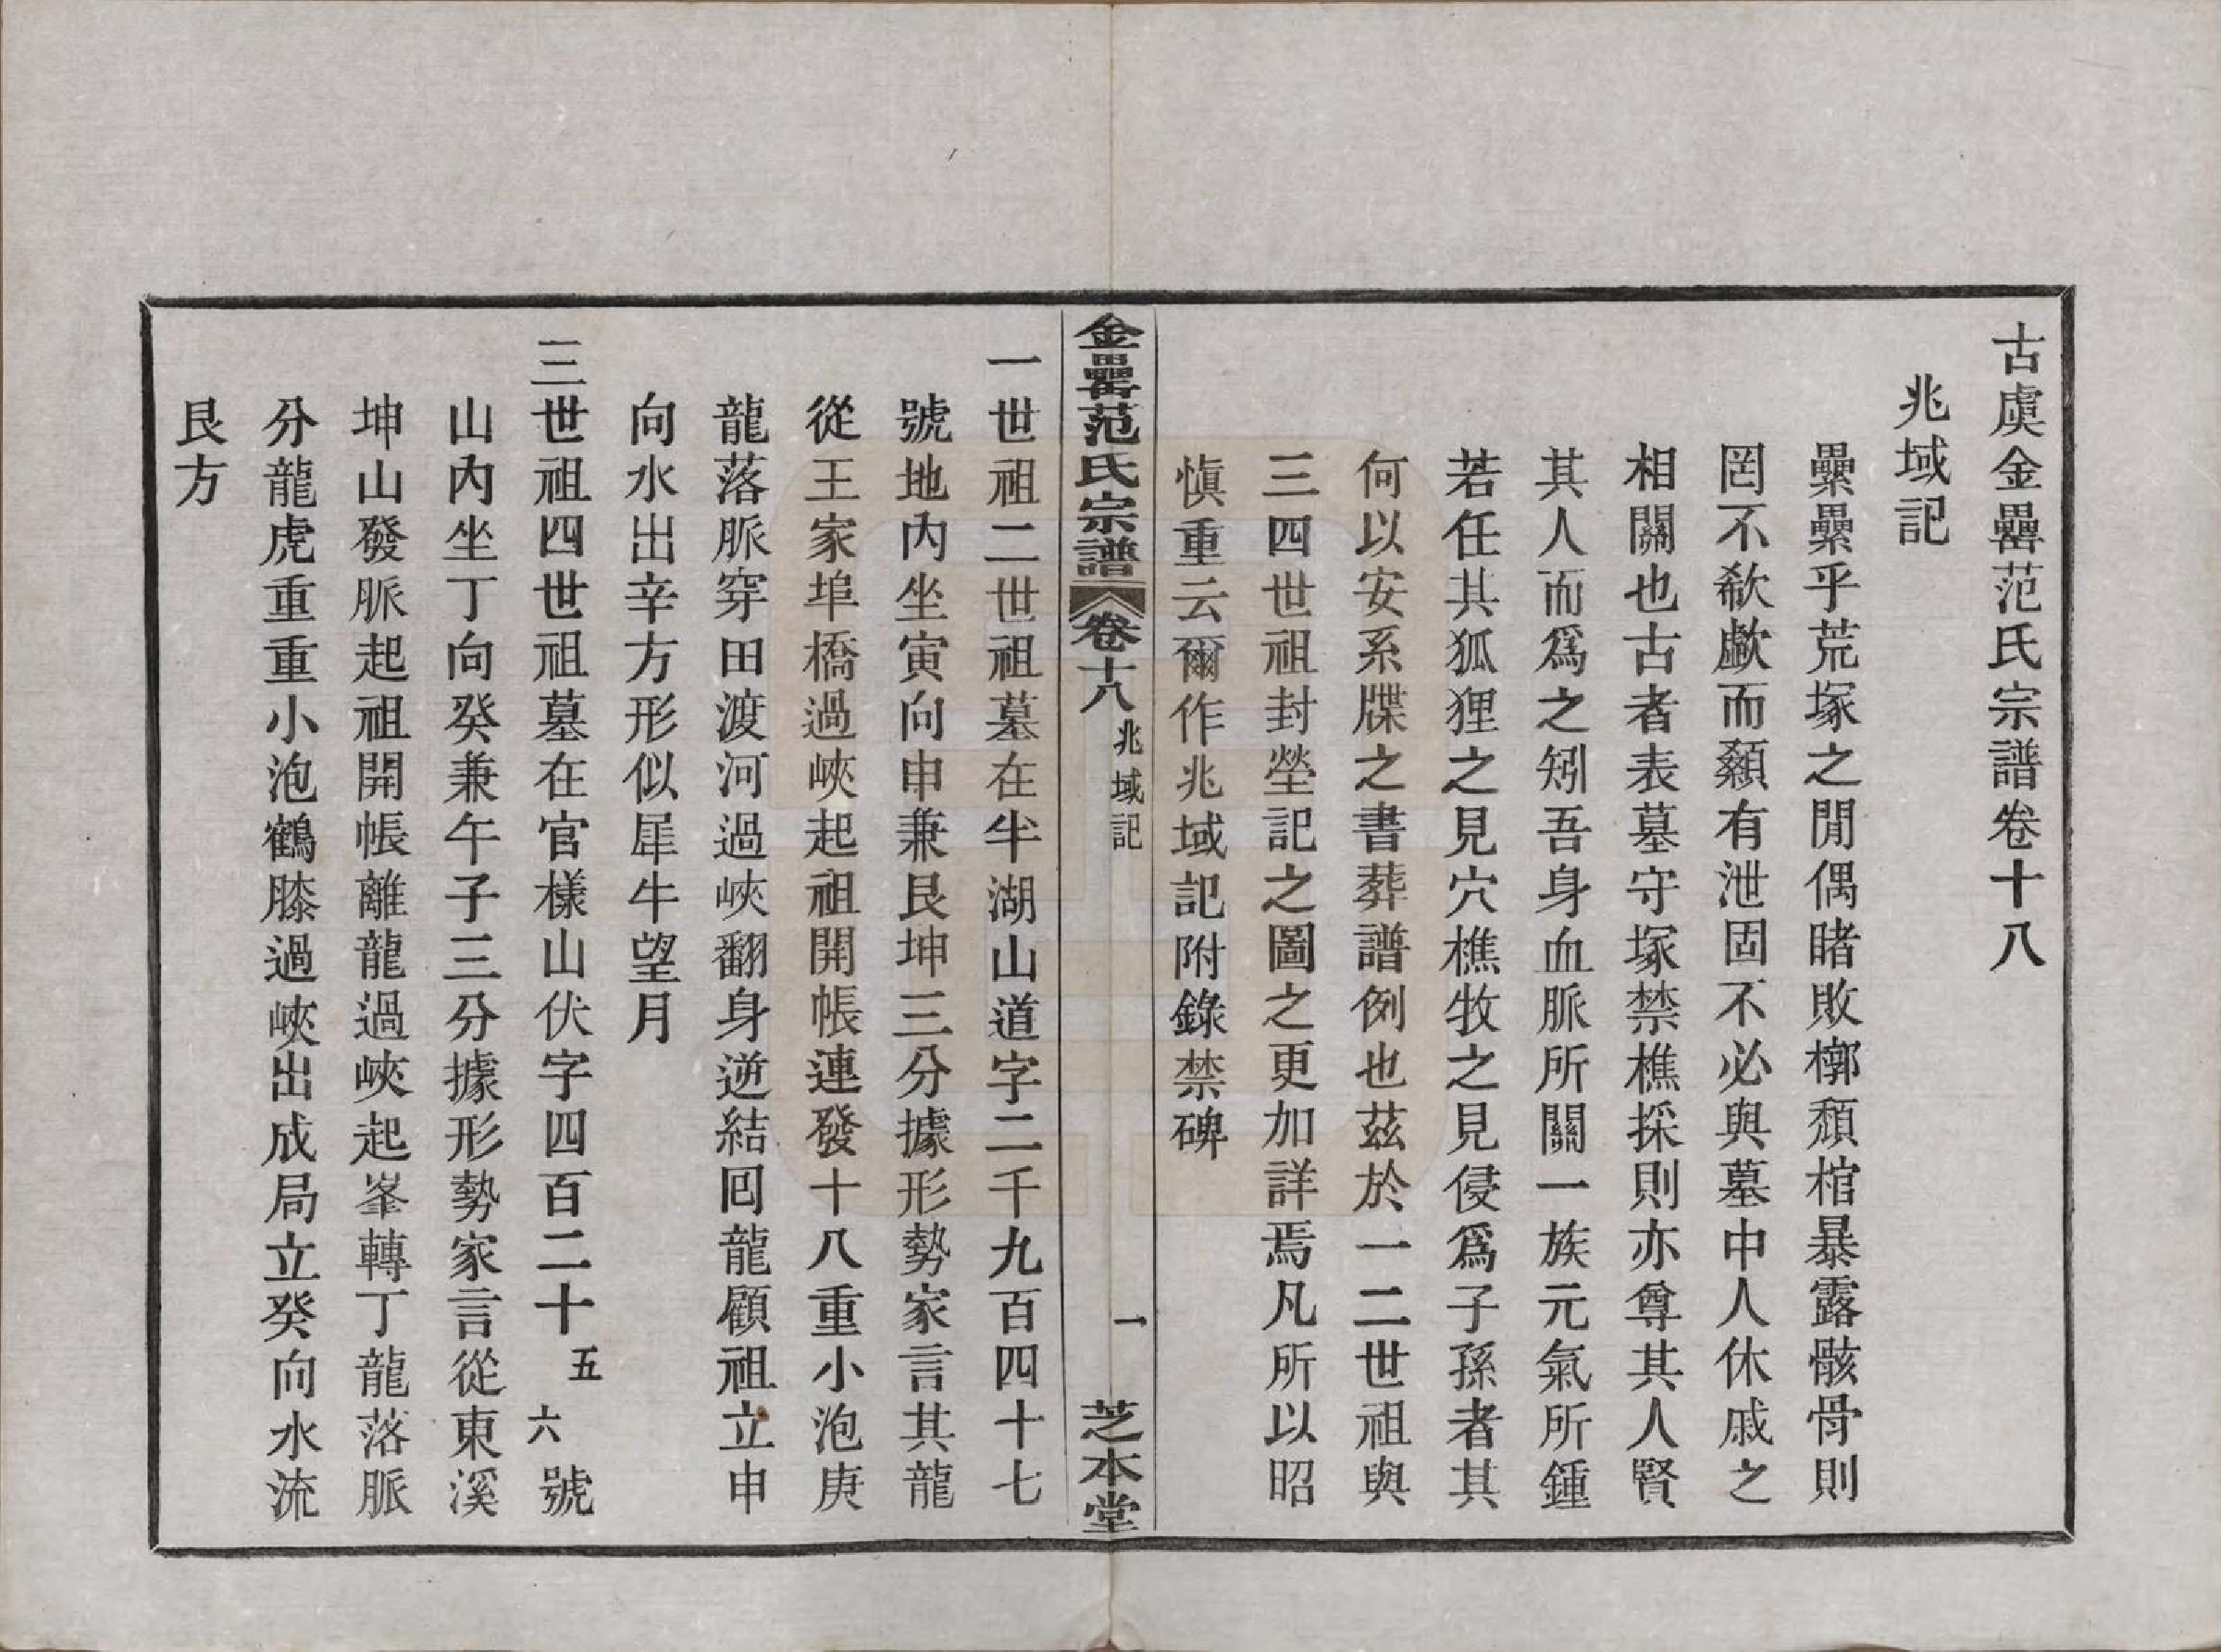 古虞金罍范氏宗譜卷十八
兆域記
纍纍乎荒塚之閒偶睹敗槨頹棺暴露骸骨則
罔不欷歔而顙有泄固不必與墓中人休戚之
相關也古者表墓守塚禁樵採則亦尊其人賢
其人而爲之矧吾身血脈所關一族元氣所鍾
若任其狐狸之見穴樵牧之見侵爲子孫者其
何以安系牒之書葬譜例也茲於一二世祖與
三四世祖封塋記之圖之更加詳焉凡所以昭
愼重云爾作兆域記附錄禁碑
金罍范氏宗譜
卷十八
兆域記
一
芝本堂
一世祖二世祖墓在半湖山道字二千九百四十七
號地內坐寅向申兼艮坤三分據形勢家言其龍
從王家埠橋過峽起祖開帳連發十八重小泡庚
龍落脈穿田渡河過峽翻身逆結回龍顧祖立申
向水出辛方形似犀牛望月
三世祖四世祖墓在官樣山伏字四百二十五六號
山內坐丁向癸兼午子三分據形勢家言從東溪
坤山發脈起祖開帳離龍過峽起峯轉丁龍落脈
分龍虎重重小泡鶴膝過峽出成局立癸向水流
艮方